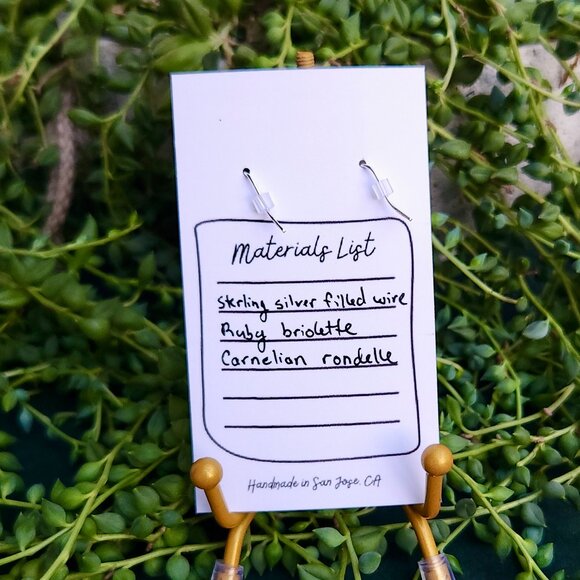 Materials List
Sterling silver filled wire
Ruby briolette
Carnelian rondelle
Handmade in San Jose, CA